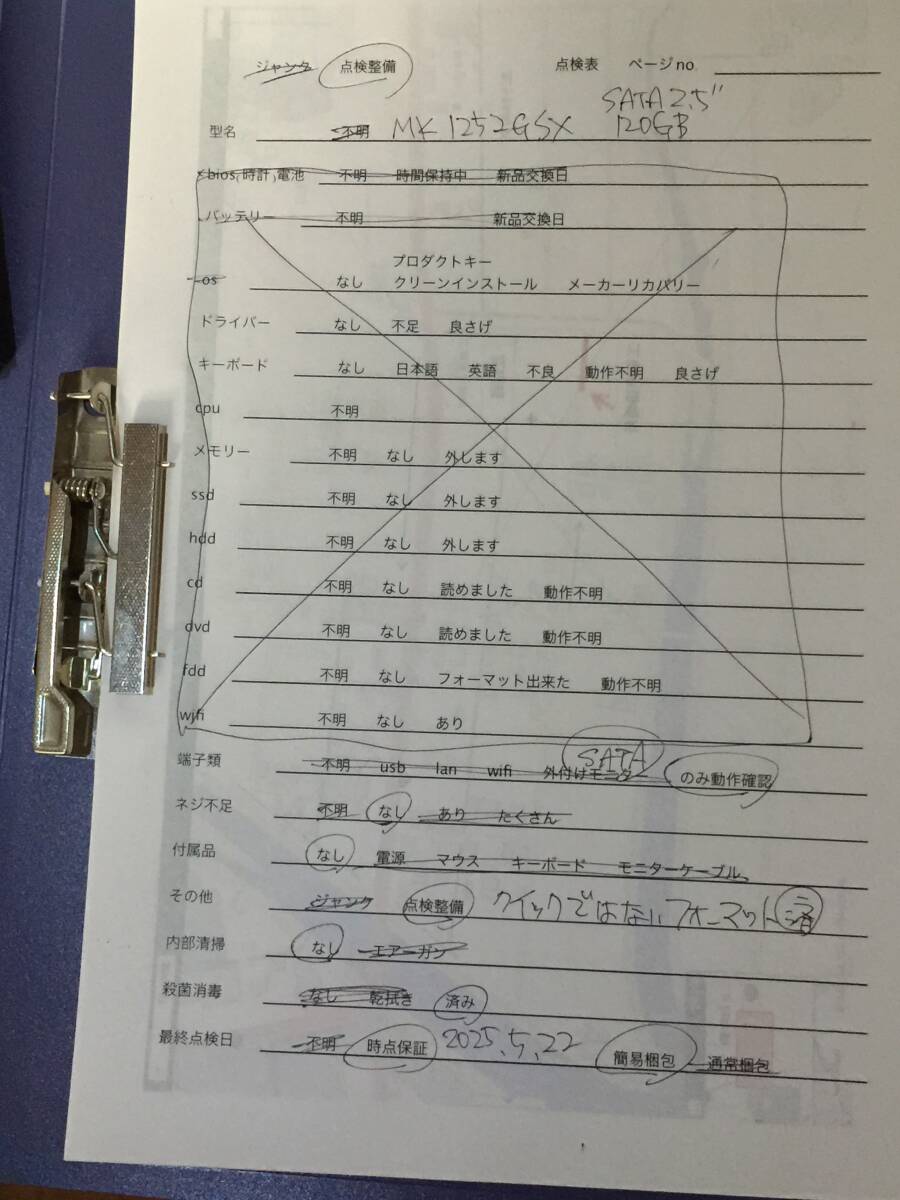 ジャンク 点検整備 点検表 ページno
SATA 2.5"
型名 不明 MK1252GSX 120GB
bios,時計,電池 不明 時間保持中 新品交換日
バッテリー 不明 新品交換日
プロダクトキー
os なし クリーンインストール メーカーリカバリー
ドライバー なし 不足 良さげ
キーボード なし 日本語 英語 不良 動作不明 良さげ
cpu 不明
メモリー 不明 なし 外します
ssd 不明 なし 外します
hdd 不明 なし 外します
cd 不明 なし 読めました 動作不明
dvd 不明 なし 読めました 動作不明
fdd 不明 なし フォーマット出来た 動作不明
wifi 不明 なし あり
SATA
端子類 不明 usb lan wifi 外付けモニター のみ動作確認
ネジ不足 不明 なし あり たくさん
付属品 なし 電源 マウス キーボード モニターケーブル
その他 ジャンク 点検整備 クイックではないフォーマット済
内部清掃 なし エアーガン
殺菌消毒 なし 乾拭き 済み
最終点検日 不明 時点保証 2025.5.22 簡易梱包 通常梱包